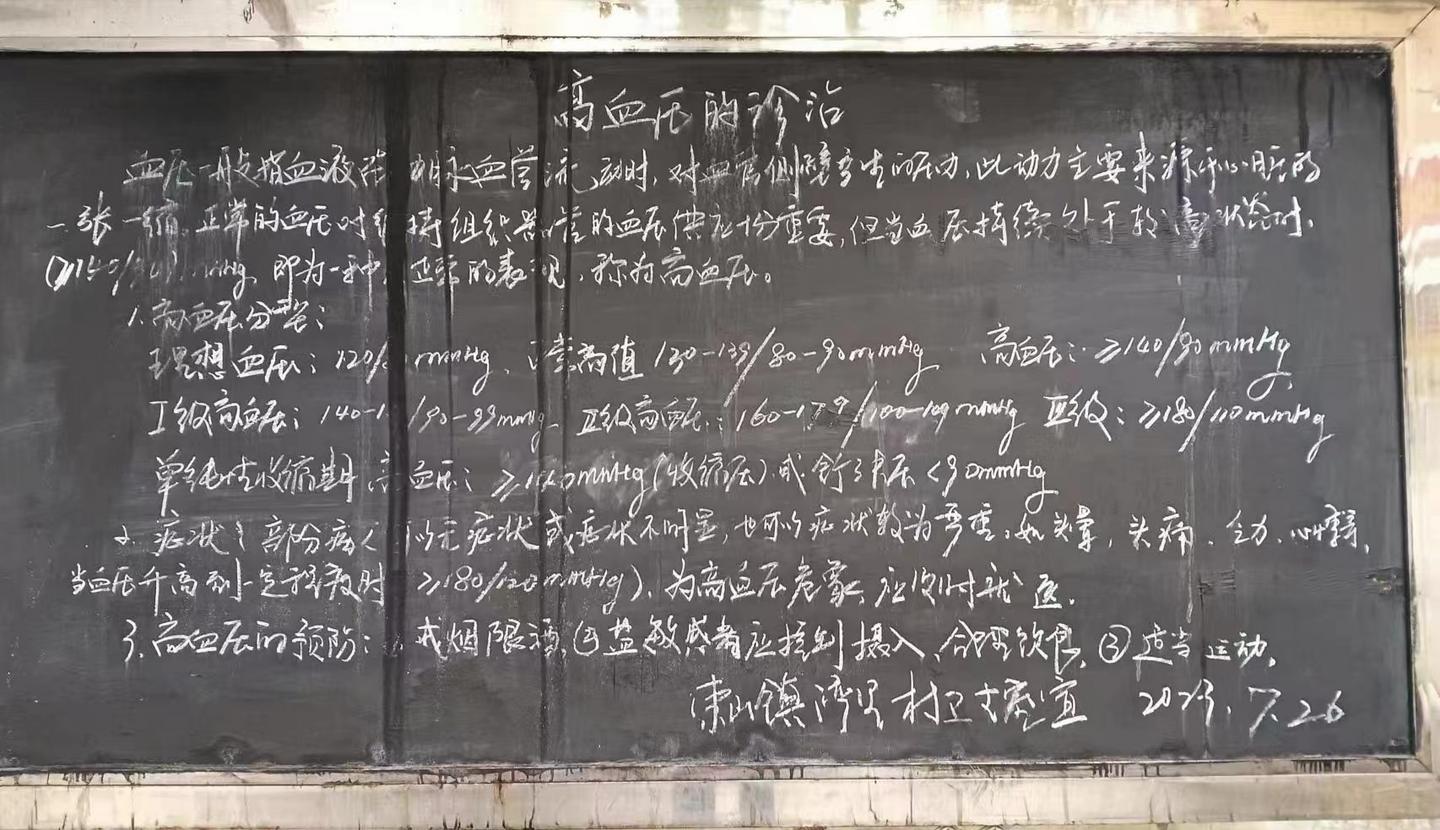 高血压的诊治
血压一般指血液在 血管流动时,对血管侧壁产生的压力,此动力主要来源于心脏的
一张一缩,正常的血压对维持组织器官的血压供应十分重要,但当血压持续处于较高状态时,
(≥140/90)mmHg,即为一种 的表现,称为高血压。
1.高血压分类:
理想血压:120/ mmHg、正常高值130-139/80-90mmHg 高血压:≥140/90mmHg
I级高血压:140-1 /90-99mmHg II级高血压:160-179/100-109mmHg III级:≥180/110mmHg
单纯性收缩期高血压:≥140mmHg(收缩压)或舒张压<90mmHg
2.症状:部份病人可以无症状或症状不明显,也可以症状较为严重。如头晕,头痛、乏力、心悸等,
当血压升高到一定程度时 ≥180/120mmHg),为高血压危象,应及时就医.
3.高血压的预防: 戒烟限酒,②盐敏感者应控制摄入、合理饮食,③适当运动.
东 镇湾里村卫生室宣 2023.7.26